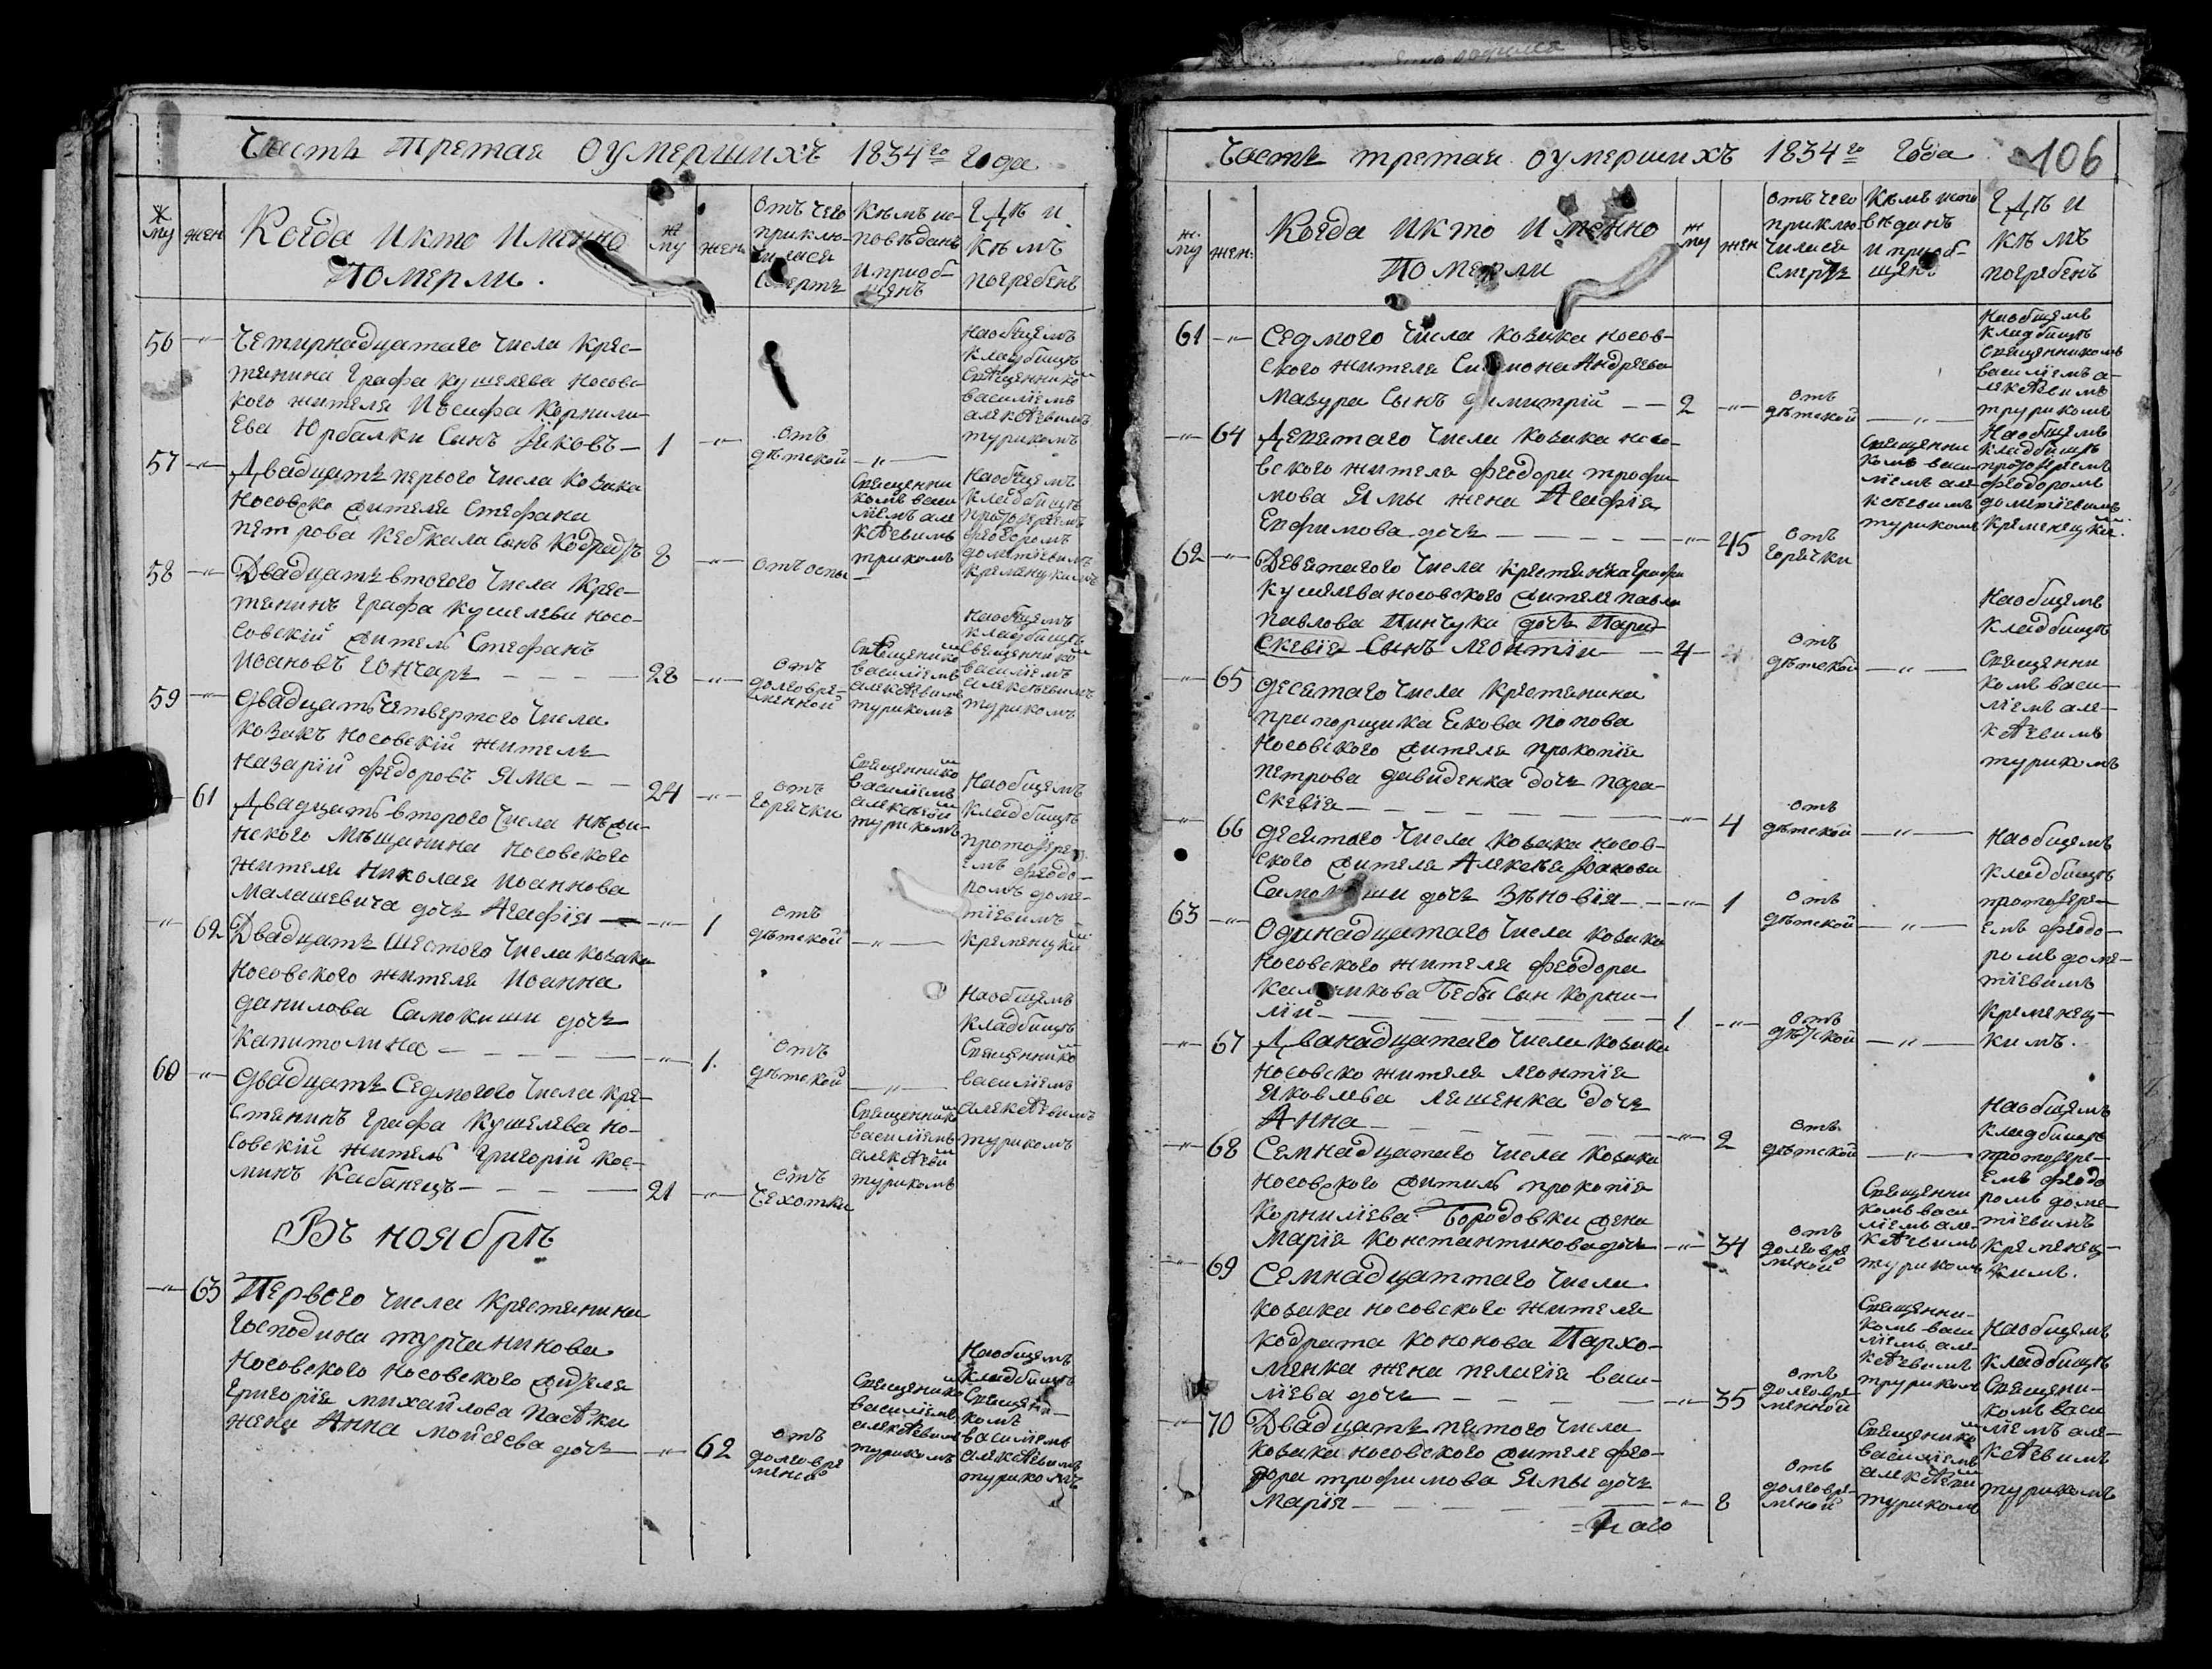 Часть третая оумершихъ 1834го года
му
жен
Когда и кто именно
померли.
му
жен
Отъ чего
приклю-
чилася
Смерть
Кѣмъ ис-
повѣданъ
и приоб-
щенъ
Гдѣ и
кѣмъ
погребенъ
56
Четирнадцатаго числа крес-
тянина Графа Кушелева Носовс-
кого жителя Иосифа Корнили-
ева Юрбалки Сынъ Яковъ
1
отъ
дѣтской
На общемъ
кладбищѣ
Священником
Василіемъ
Алексѣевимъ
Турикомъ
57
Двадцать первого числа козака
Носовско жителя Стефана
Петрова Сынъ
8
отъ оспы
Священни
комъ Васи
ліемъ Але
ксѣевимъ
Туриком
На общемъ
кладбищѣ
протоіереемъ
Феодоромъ
Дометіевимъ
Кремянецкимъ
58
Двадцать второго числа крес-
тянинъ Графа Кушелеви Носо-
совскій житель Стефанъ
Иоановъ Гончаръ
28
отъ
долговре-
менной
Священником
Василіемъ
Алексѣевимъ
Турикомъ
На общемъ
кладбищѣ
Священником
Василіемъ
Алексѣевимъ
Турикомъ
59
Двадцать четвертого числа
козакъ Носовскій житель
Назарій Федоровъ Яма
24
отъ
горячки
Священником
Василіемъ
Алексѣевим
Туриком
На общемъ
кладбищѣ
протоіере-
емъ Феодо-
ромъ Доме-
тіевимъ
Кременцким
61
Двадцать второго числа Нѣжи-
нского мѣщанина Носовского
жителя Николая Иоаннова
Малашевича дочь Агафія
1
отъ
дѣтской
62
Двадцать шестого числа козака
Носовского жителя Иоанна
Данилова Самокиши дочь
Капитолина
1.
отъ
дѣтской
На общемъ
кладбищѣ
Священником
Василіемъ
Алексѣевимъ
Турикомъ
60
Двадцать Седмогого числа кре-
стянинъ Графа Кушелева Но-
совскій житель Григорій Кос-
минъ Кабанецъ
21
отъ
чехотки
Священником
Василіемъ
Алексѣевим
Туриком
Въ ноябрѣ
63
Первого числа крестянина
Господина Турчанинова
Носовского Носовского жителя
Григорія Михайлова Пасѣки
жена Анна Мойсеева дочь
62
отъ
долговре
меной
Священником
Василіемъ
Алексѣевим
Турикомъ
На общемъ
кладбищѣ
Священни-
комъ
Василіемъ
Алексѣевимъ
Турикомъ
Часть третая оумершихъ 1834го года
106
му
жен
Когда и кто именно
Померли
му
жен
Отъ чего
приклю-
чилася
Смерть
Кѣмъ испо
вѣданъ
и приоб-
щенъ
Гдѣ и
кѣмъ
погребенъ
61
Седмого числа козака Носов-
ского жителя Симиона Андреева
Мазура Сынъ Димитрій
2
отъ
дѣтской
На общемъ
кладбищѣ
Священникомъ
Василіемъ А-
лексѣевимъ
Турикомъ
64
Девятаго числа козака Носо-
вского жителя Феодора Трофи
мова Ямы жена Агафія
Ефимова дочь
45
отъ
горячки
Священни
комъ Васи
ліемъ Але
ксѣевимъ
Турикомъ
На общемъ
кладбищѣ
протоіереемъ
Феодоромъ
Дометіевимъ
Кременецким.
62
Девятагого числа крестянина Графа
Кушелева Носовского жителя Павла
Павлова Пинчука дочь Пара
скевія Сынъ Леонтій
4
отъ
дѣтской
На общемъ
кладбищѣ
Священни
комъ Васи-
ліемъ Але-
ксѣевимъ
Турикомъ
65
Десятаго числа крестянина
прапорщика Якова Попова
Носовского жителя Прокопія
Петрова Давиденка дочь Пара-
скевія
4
отъ
дѣтской
66
Десятаго числа козака Носов-
ского жителя Алексѣя Яакова
Самокиши дочь Зѣновія
1
отъ
дѣтской
На общемъ
кладбищѣ
протоіере-
емъ Феодо-
ромъ Доме-
тіевимъ
Кременец-
кимъ.
63
Одинадцатаго числа козака
Носовского жителя Феодора
Калиникова Бебы Сын Корни-
лій
1
отъ
дѣтской
67
Дванадцатаго числа козака
Носовско жителя Леонтія
Яковлева Ляшенка дочь
Анна
2
отъ
дѣтской
На общемъ
кладбищѣ
протоіере-
емъ Феодо
ромъ Доме-
тіевимъ
Кременец-
кимъ.
68
Семнадцатаго числа козака
Носовского житиль Прокопія
Корниліева Бородовки жена
Марія Константинова дочь
34
отъ
долговре
меной
Священни
комъ Васи
ліемъ Але-
ксѣевимъ
Турикомъ
69
Семнадцаттаго числа
козака Носовского жителя
Кодрата Кононова Пархо-
менка жена Пелагія Васи-
ліева дочь
35
отъ
долговре-
менной
Священни-
комъ Васи
ліемъ Але-
ксѣевимъ
Туриком
На общемъ
кладбищѣ
Священи-
комъ Васи
ліемъ Але-
ксѣевимъ
Турикомъ
70
Двадцать пятого числа
козака Носовского жителя Фео-
дора Трофимова Ямы дочь
Марія
8
отъ
долговре-
меной
Священиком
Василіемъ
Алексѣевим
Турикомъ